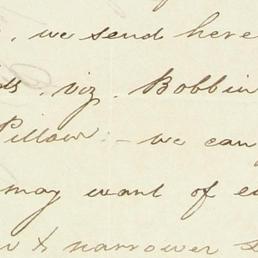 , we send here
viz. Bobbin
Pillow: - we can
may want of
& narrower